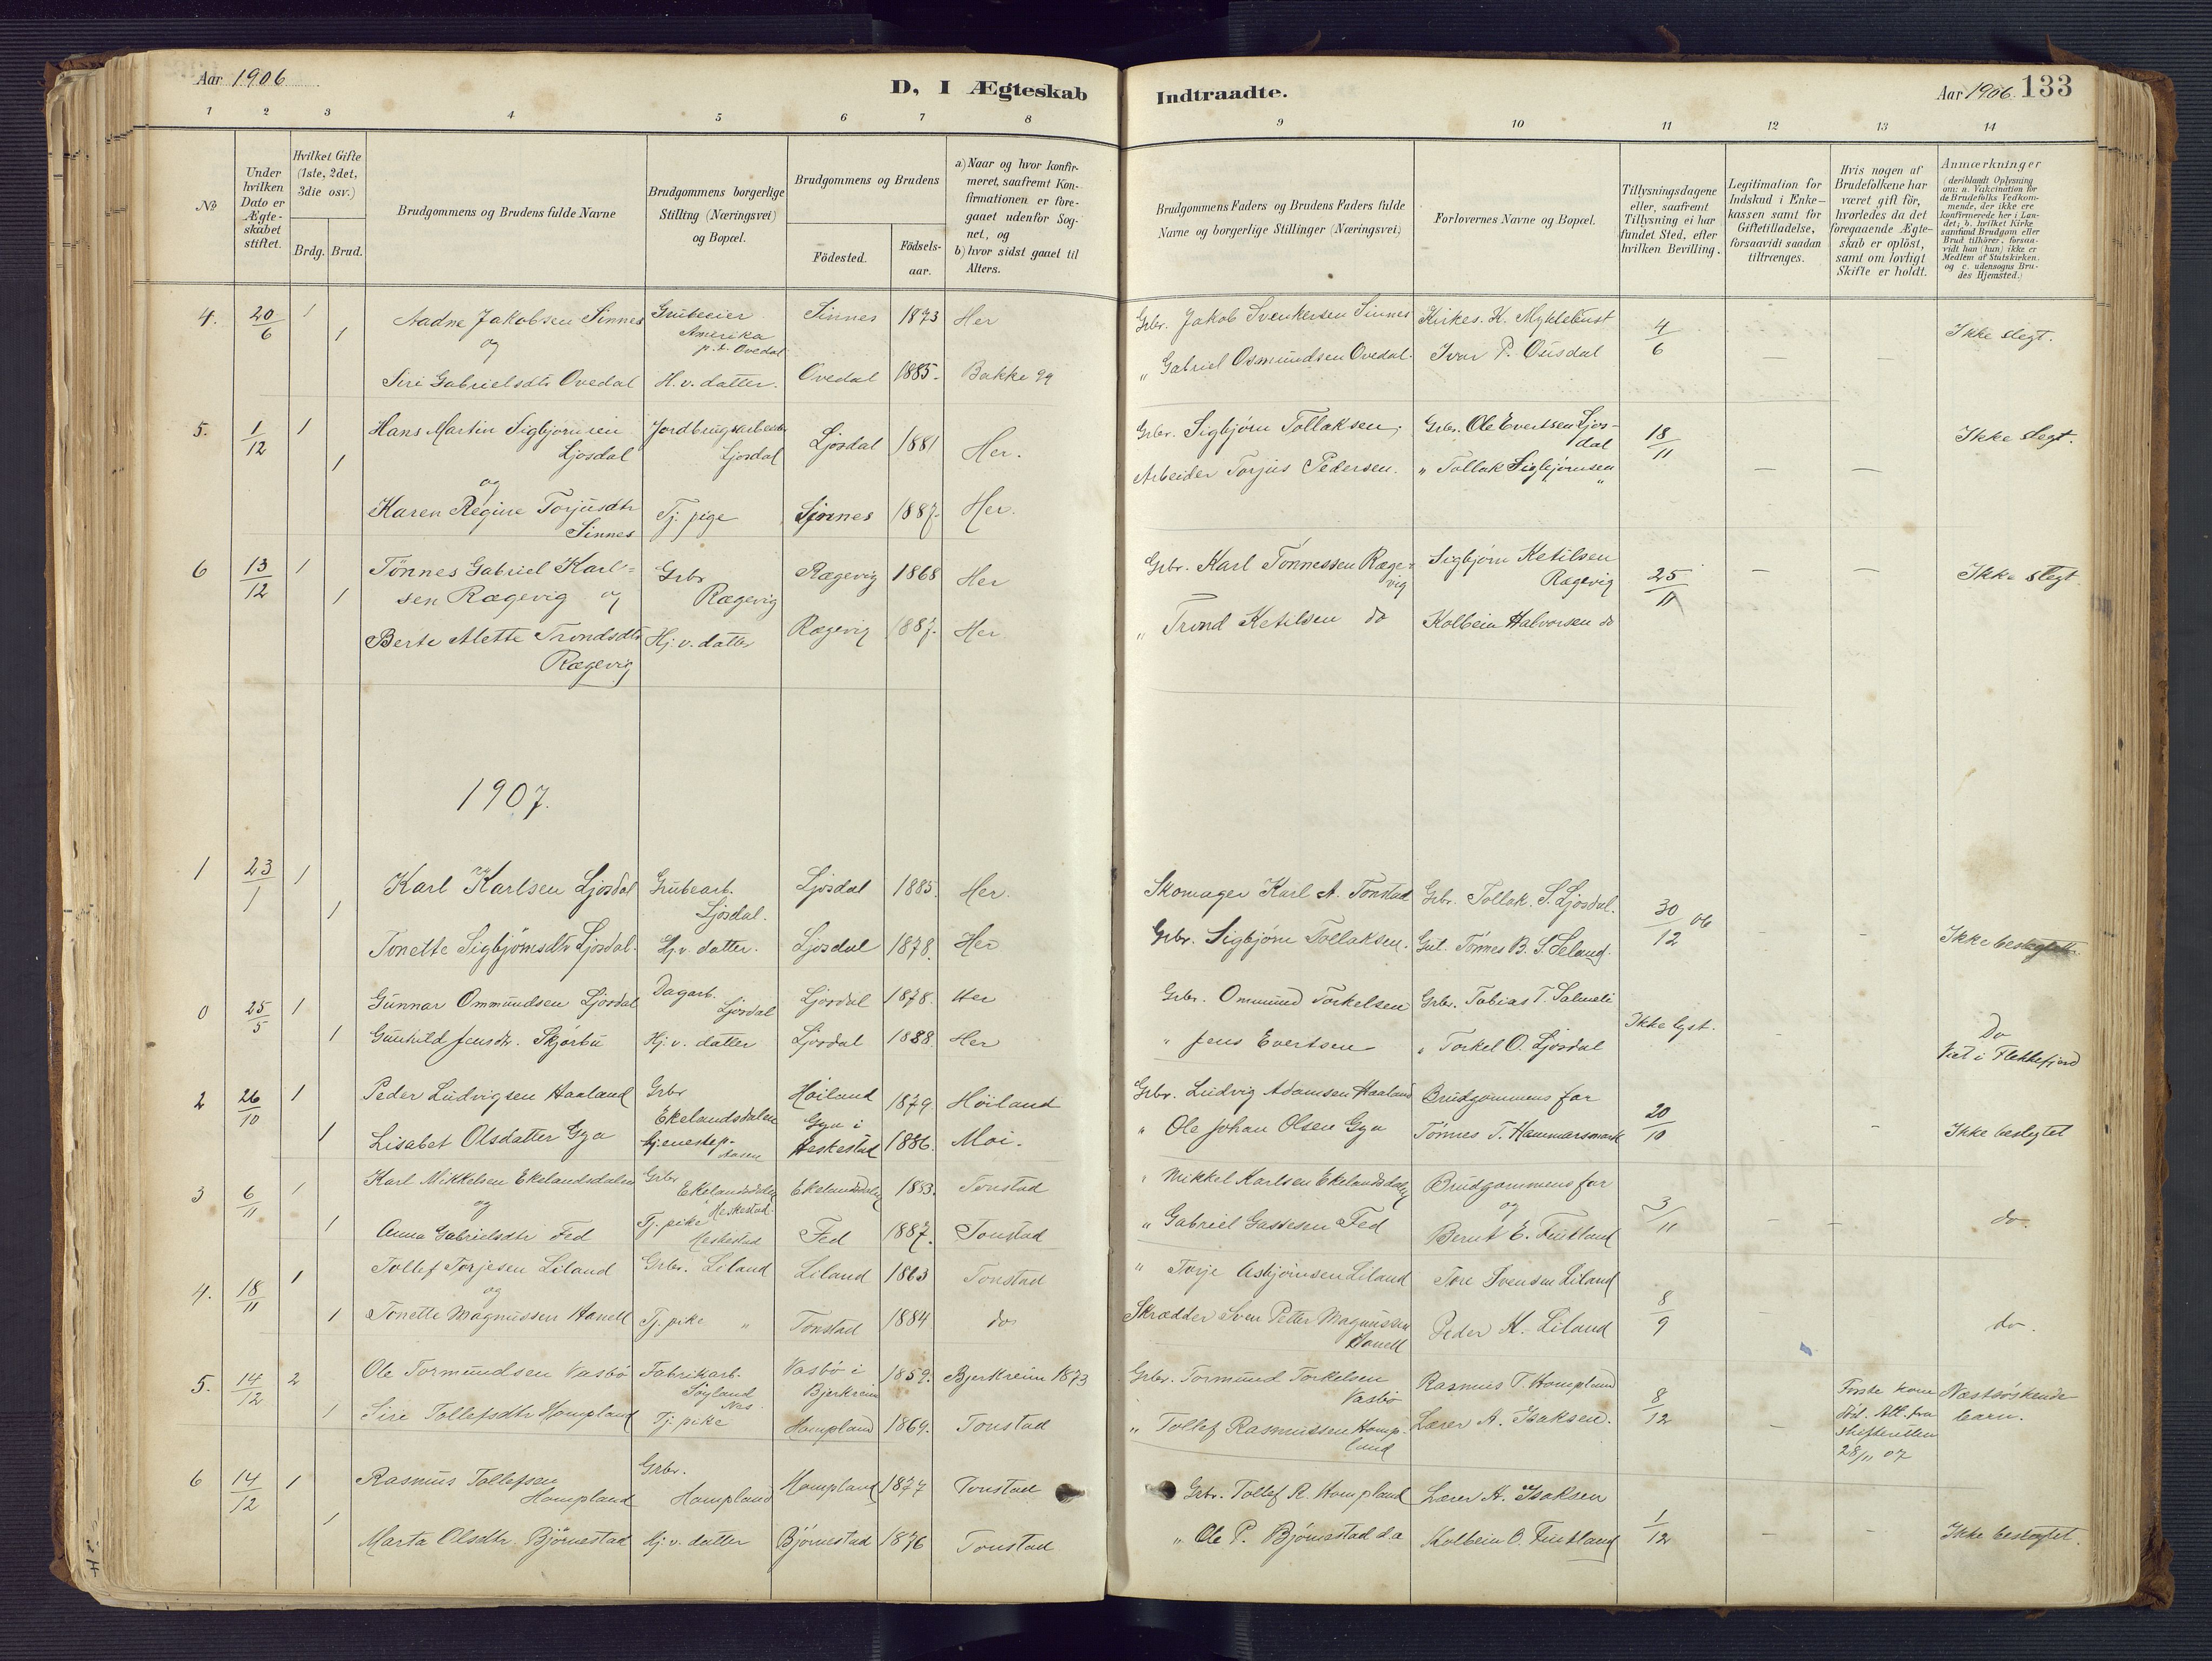 Aar 1906
D, I Ægteskab
Indtraadte.
Aar 1906. 133
1 2 3 4 5 6 7 8 9 10 11 12 13 14
№
Under hvilken Dato er Ægte-skabet stiftet.
Hvilket Gifte (1ste, 2det, 3die osv.)
Brdg. Brud.
Brudgommens og Brudens fulde Navne
Brudgommens borgerlige Stilling (Næringsvei) og Bopæl.
Brudgommens og Brudens
Födested.
Födsels-aar.
a) Naar og hvor konfir-meret, saafremt Kon-firmationen er fore-gaaet udenfor Sog-net, og
b) hvor sidst gaaet til Alters.
Brudgommens Faders og Brudens Faders fulde Navne og borgerlige Stillinger (Næringsvei)
Forlovernes Navne og Bopæl.
Tillysningsdagene eller, saafremt Tillysning ei har fundet Sted, efter hvilken Bevilling.
Legitimation for Indskud i Enke-kassen samt for Giftetilladelse, forsaavidt saadan tiltrænges.
Hvis nogen af Brudefolkene har været gift før, hvorledes da det foregaaende Ægte-skab er oplöst, samt om lovligt Skifte er holdt.
Anmærkninger
(deriblandt Oplysning om: a. Vakcination for de Brudefolks Vedkom-mende, der ikke ere konfirmerede her i Lan-det; b. hvilket Kirke-samfund Brudgom eller Brud tilhörer, forsaa-vidt han (hun) ikke er Medlem af Statskirken. og c. udensogns Bru-des Hjemsted.)
4. 20/6 1 Aadne Jakobsen Sinnes Grubeeier Amerika p.t. Ovedal Sinnes 1873 Her Grbr. Jakob Svenkersen Sinnes Kirkes. K. Myklebust 4/6 Ikke slegt.
og
1 Siri Gabrielsdtr Ovedal H.v. datter. Ovedal 1885. Bakke 99 " Gabriel Osmundsen Ovedal. Ivar P. Ousdal
5. 1/12 1 Hans Martin Sigbjørnsen Ljosdal Jordbrugsarbeider Ljosdal Ljosdal 1881 Her. Grbr. Sigbjørn Tollaksen, Grbr. Ole Evertsen Ljos-dal 18/11 Ikke slegt.
og
1 Karen Regine Torjusdtr Sinnes Tj. pige Sinnes 1887. Her. Arbeider Torjus Pedersen. " Tollak Sigbjørnsen "
6 13/12 1 Tönnes Gabriel Karl=sen Rægevig og Grbr Rægevig Rægevig 1868 Her Grbr. Karl Tönnessen Ræge-vig Sigbjørn Ketilsen Rægevig 25/11 Ikke slegt.
1 Berte Alette Trondsdtr Rægevig Hj. v. datter Rægevig 1887. Her " Trond Ketilsen do Kolbein Halvorsen do
1907.
1 23/1 1 Karl Karlsen Ljosdal Grubearb. Ljosdal. Ljosdal 1885. Her. Skomager Karl A. Tonstad Grbr. Tollak. S. Ljosdal. 30/12 06
og
1 Tonette Sigbjörnsdtr Ljosdal. Hj. v. datter. Ljosdal 1878. Her Grbr. Sigbjørn Tollaksen. Tönnes B. S. Seland. Ikke beslegtet.
0 25/5 1 Gunnar Ommundsen Ljosdal Dagarb. Ljosdal Ljosdal 1878. Her Grbr. Ommund Torkelsen Grbr. Tobias T. Salmeli Ikke lyst.
1 Gunhild Jensdtr. Skjørbu Hj. v. datter Ljosdal 1888. Her " Jens Evertsen " Torkel O. Ljosdal Do Viet i Flekkefjord
2 26/10 1 Peder Ludvigsen Haaland Grbr Ekelandsdalen Höiland 1879 Höiland Grbr. Ludvig Adamsen Haaland Brudgommens far 20/10
1 Lisabet Olsdatter Gya tjenestep. Gya i Heskestad 1886. Moi. " Ole Johan Olsen Gya Tönnes T. Hammarsmark Ikke beslegtet
3 6/11 1 Karl Mikkelsen Ekelandsdalen Grbr Ekelandsdalen Heskestad. Ekelandsdalen 1883. Tonstad " Mikkel Karlsen Ekelandsdalen Brudgommens far 3/11 do.
og
1 Anna Gabrielsdtr Fed Tj. pike Heskestad Fed 1887. Tonstad " Gabriel Gassesen Fed og Bernt E. Fintland
4. 18/11 1 Tollef Torjesen Liland Grbr. Liland Liland 1863 Tonstad " Torje Asbjørnsen Liland Tore Svensen Liland 8/9 do.
og
1 Tonette Magnussen Hanell Tj. pike " Tonstad 1884 do Skrædder Sven Petter Magnussen Hanell Peder K. Liland
5. 14/12 2 Ole Tormundsen Vasbö Fabrikarb. Söyland Nes Vasbö i Bjerkreim 1859. Bjerkreim 1873 Grbr. Tormund Torkelsen Vasbö Rasmus T. Hompland 8/12 Förste kone död. Att. fra skifteretten 28/11 07 Næstsöskende barn.
1 Siri Tollefsdtr Hompland Tj. pike Hompland 1869. Tonstad " Tollef Rasmussen Homp-land Lærer A. Isaksen.
6 14/12 1 Rasmus Tollefsen Hompland Grbr. Hompland Hompland 1877 Tonstad Grbr. Tollef R. Hompland Lærer A. Isaksen 1/12
1 Marta Olsdtr. Björnestad Hj. v. datter Björnestad 1876 Tonstad " Ole P. Björnestad d.a Kolbein O. Fintland Ikke beslegtet.